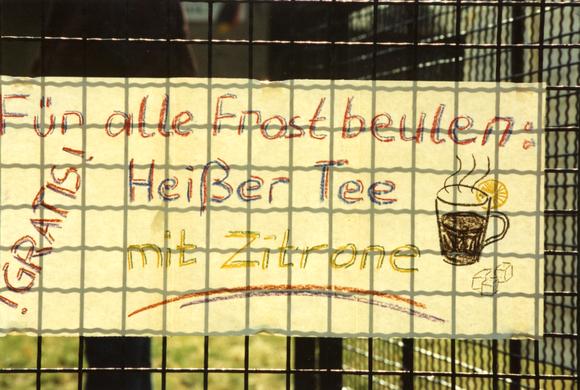 Für alle Frostbeulen:
Heißer Tee
mit Zitrone
!GRATIS!